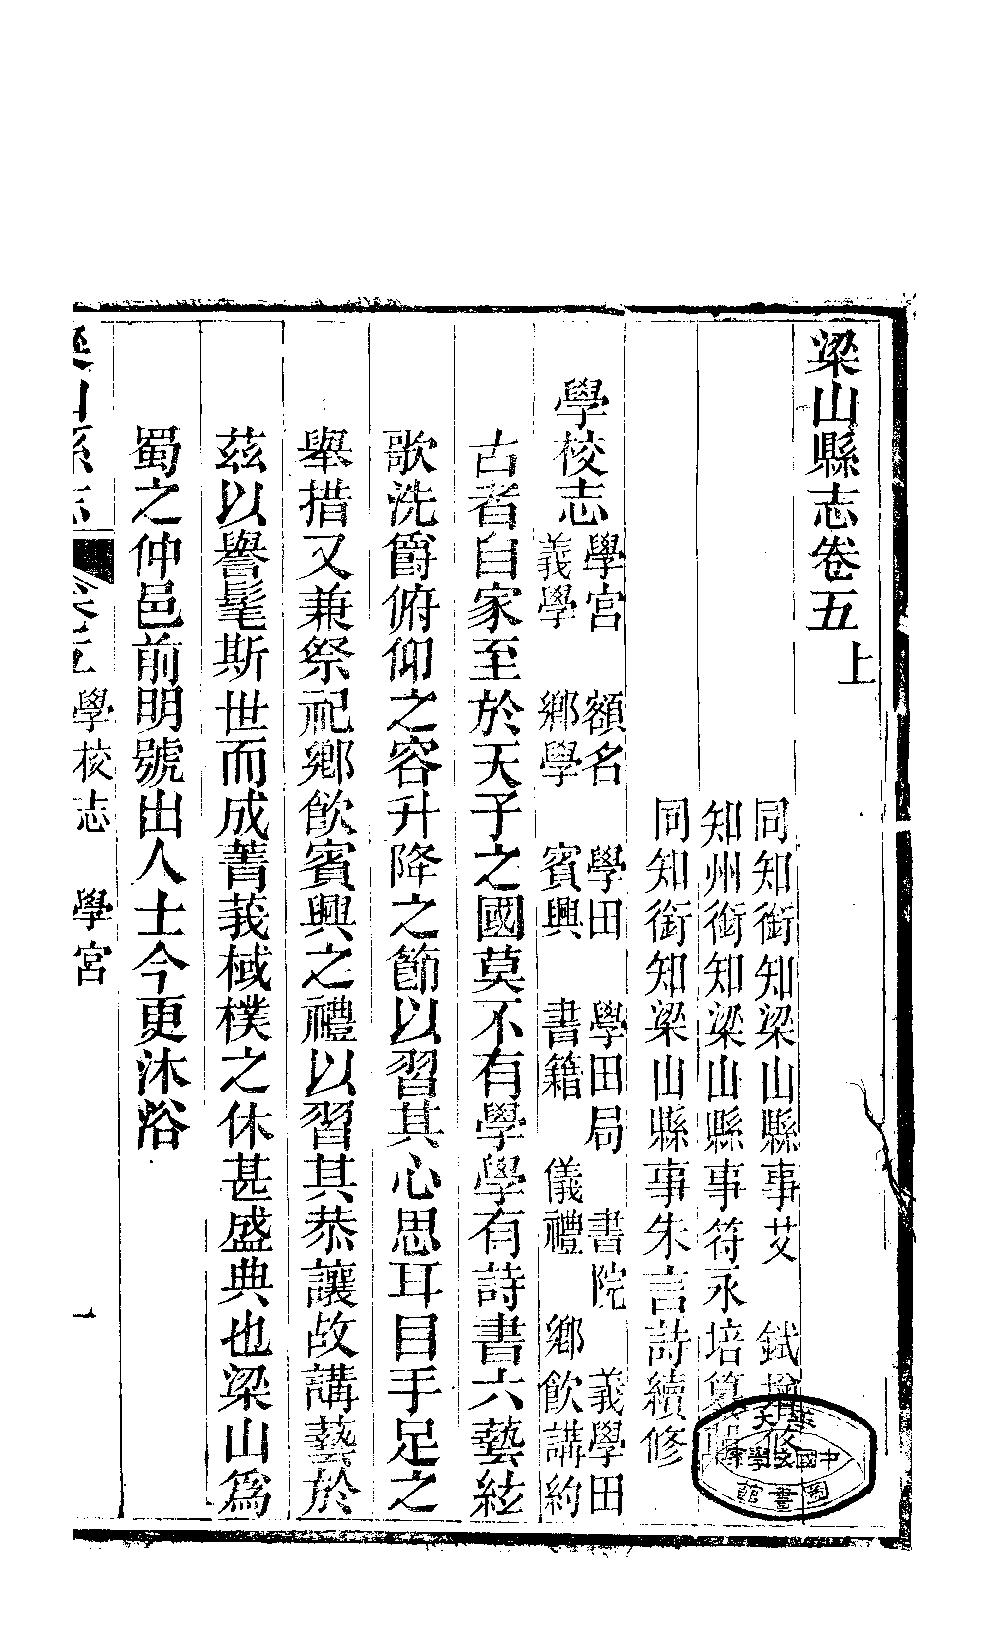 梁山縣志卷五上
同知銜知梁山縣事艾 鉽增修
知州銜知梁山縣事符永培
同知銜知梁山縣事朱言詩續修
學校志 學宮 額名 學田 學田局 書院 義學田
義學 鄉學 賓興 書籍 儀禮 鄉飲講約
古者自家至於天子之國莫不有學學有詩書六藝絃
歌洗爵俯仰之容升降之節以習其心思耳目手足之
舉措又兼祭祀鄉飲賓興之禮以習其恭讓故講藝於
茲以譽髦斯世而成菁莪棫樸之休甚盛典也梁山爲
蜀之仲邑前明號出人士今更沐浴
梁山縣志 卷五 學校志 學宮 一
中國 學
圖書館